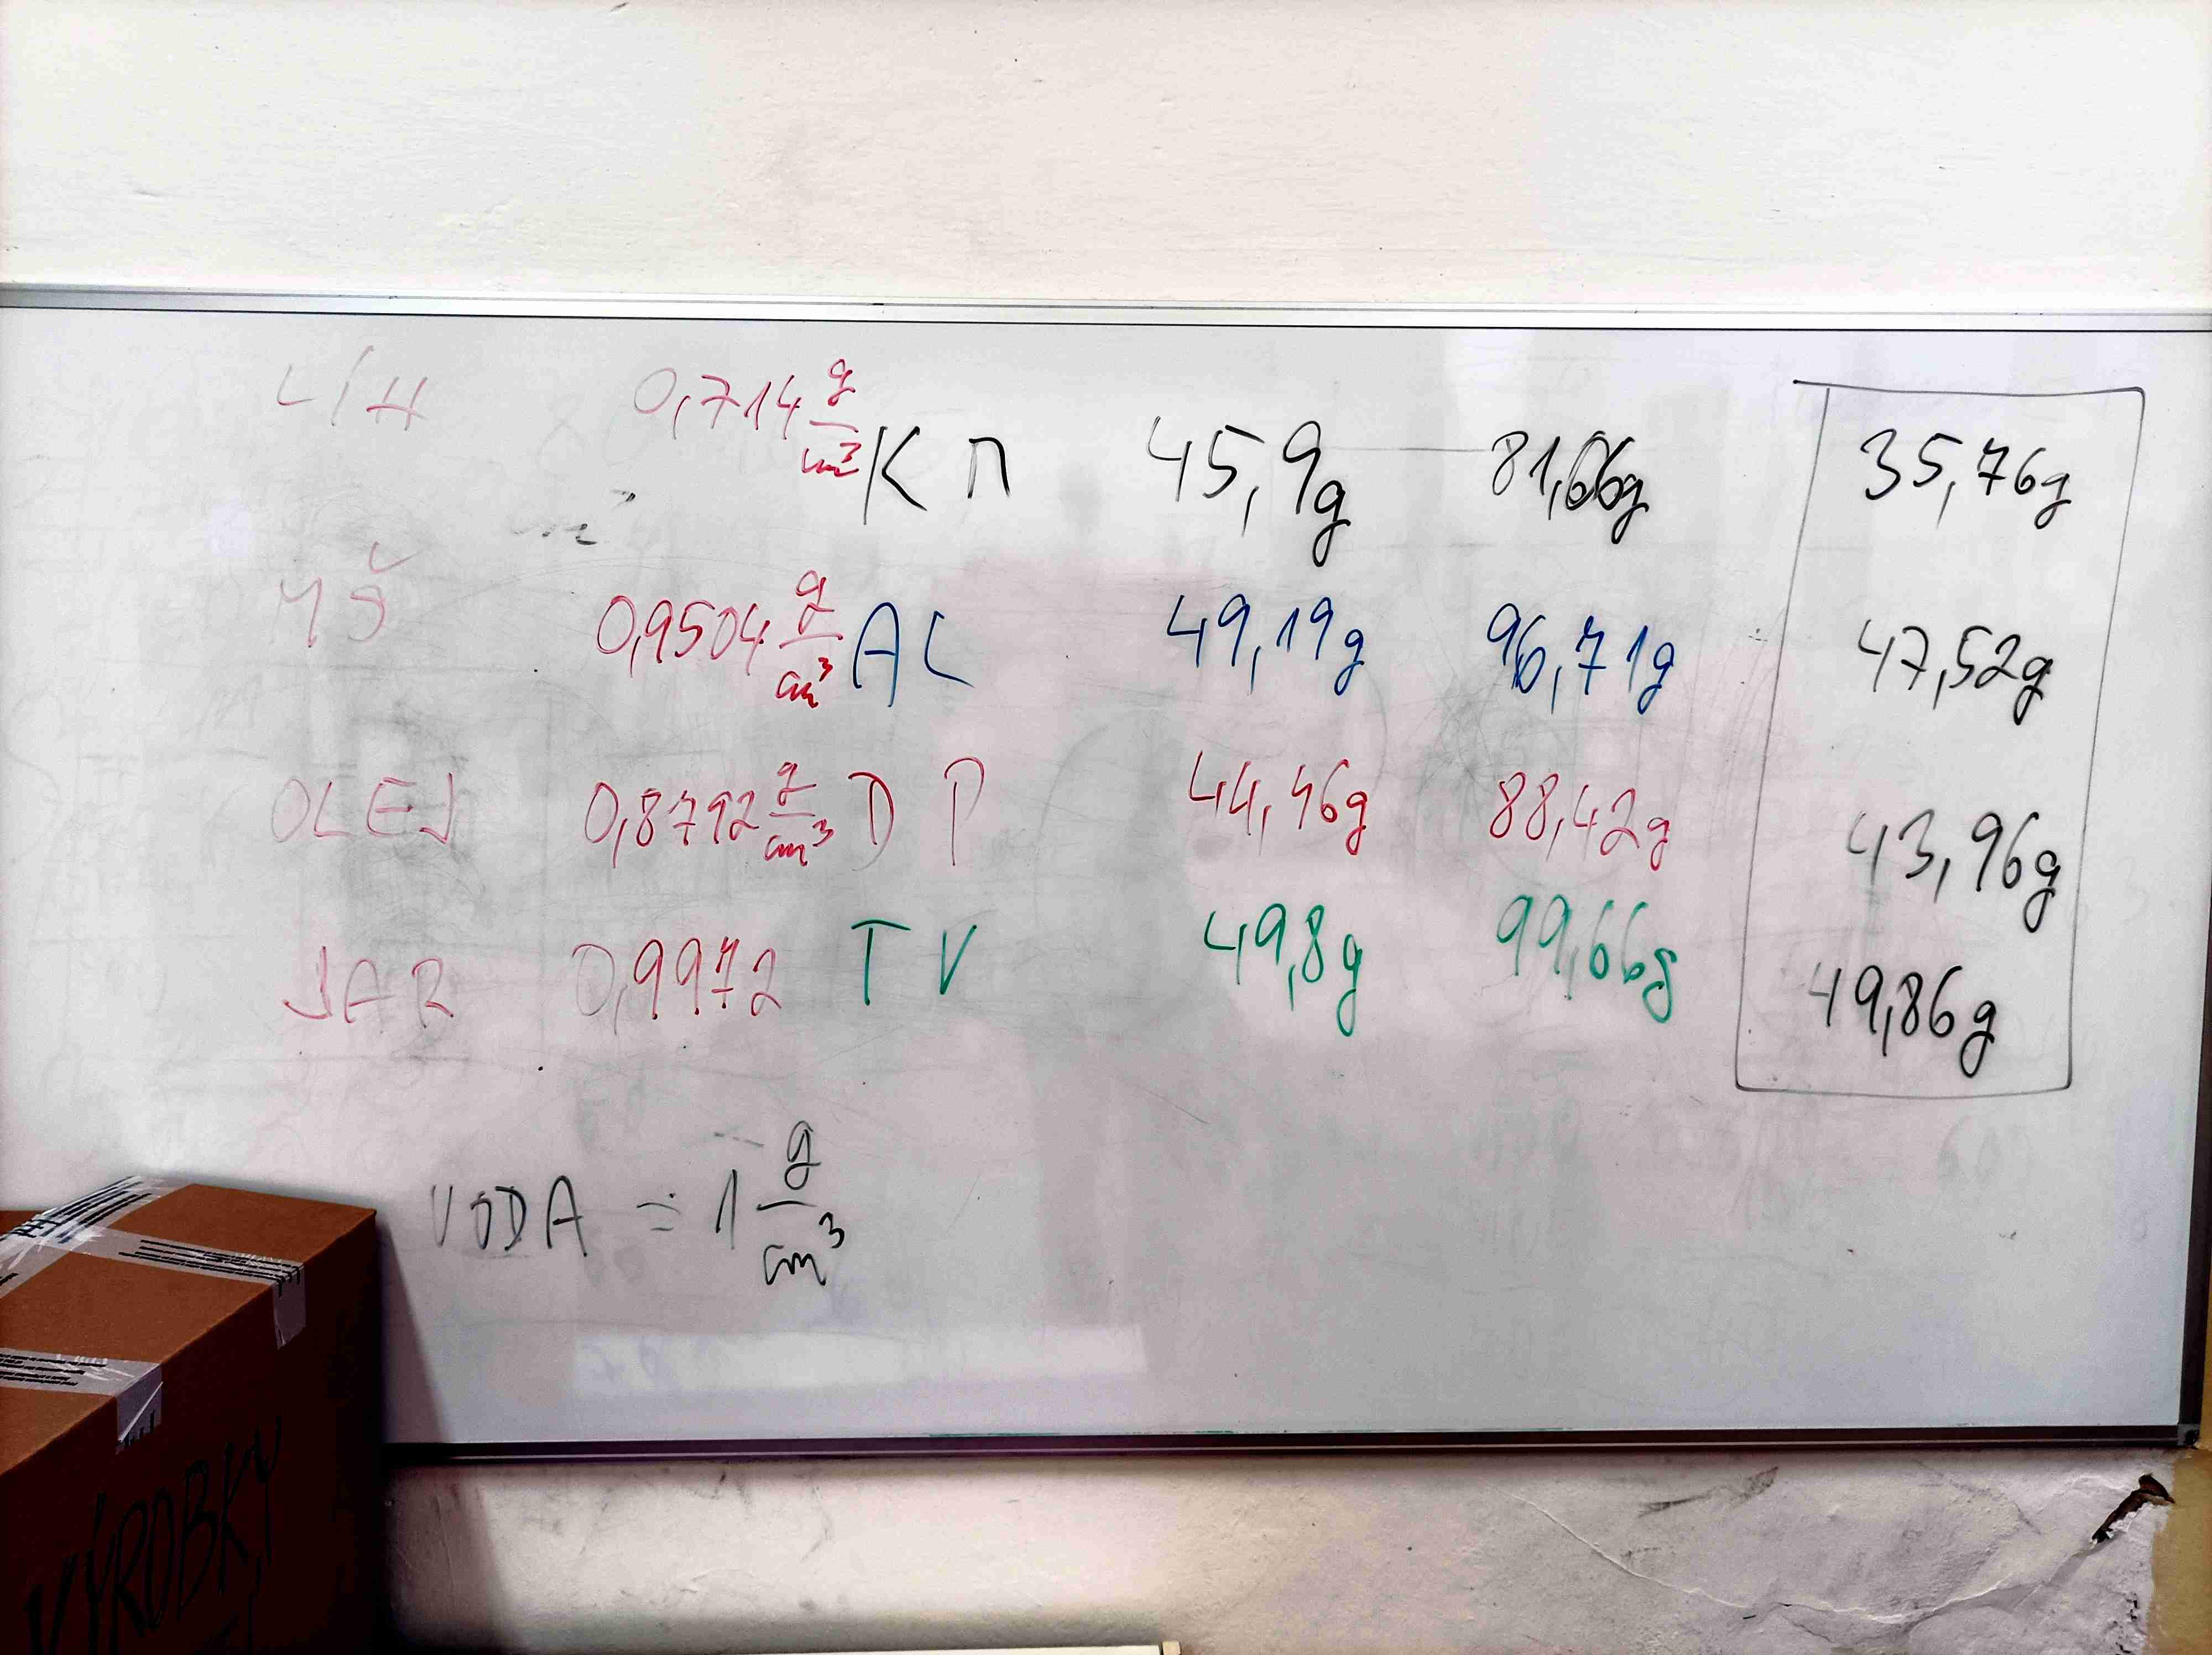 LÍH 0,714 g/cm³ K Π 45,9g 81,66g 35,76g
MŠ 0,9504 g/cm³ A L 49,19g 96,71g 47,52g
OLEJ 0,8792 g/cm³ D P 44,46g 88,42g 43,96g
JAR 0,9972 T V 49,8g 99,66g 49,86g
VODA ≐ 1 g/cm³
VÝROBKY